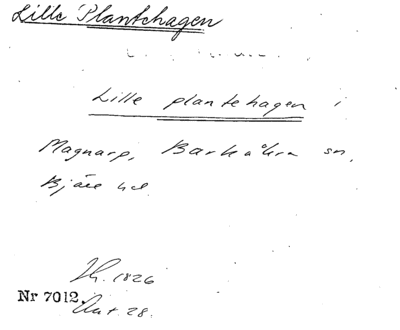 Lille Plantehagen
Lille plantehagen i
Magnarp, Barkåkra sn,
Bjäre hd.
Jh. 1826
Nr 7012. Akt 28.